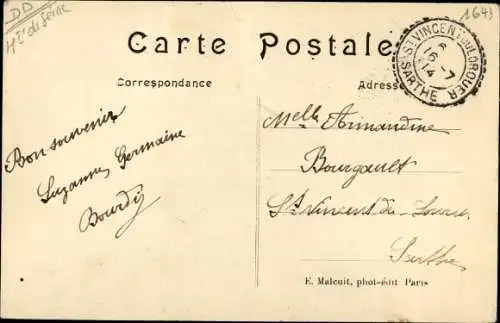 DD
Hte de Seine
1643
Carte Postale
Correspondance
Adresse
ST VINCENT DU LOROUER
SARTHE
Bon souvenir
Suzanne, Germaine
Bourdy
Melle Armandine
Bourgault
St Vincent du
Sarthe
E. Malcuit, phot-édit Paris